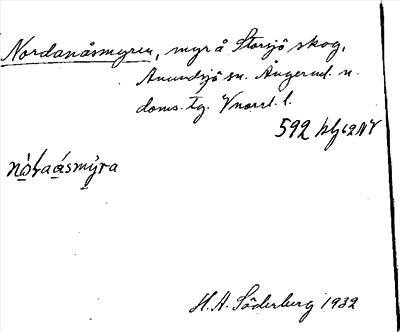 Nordanåsmyren, myr å Storsjö skog,
Anundsjö sn. Ångerml. n.
doms. tg. Vnorrl. l.
592 hlg 62 NV
nòṛaásmýra
H. A. Söderberg 1932